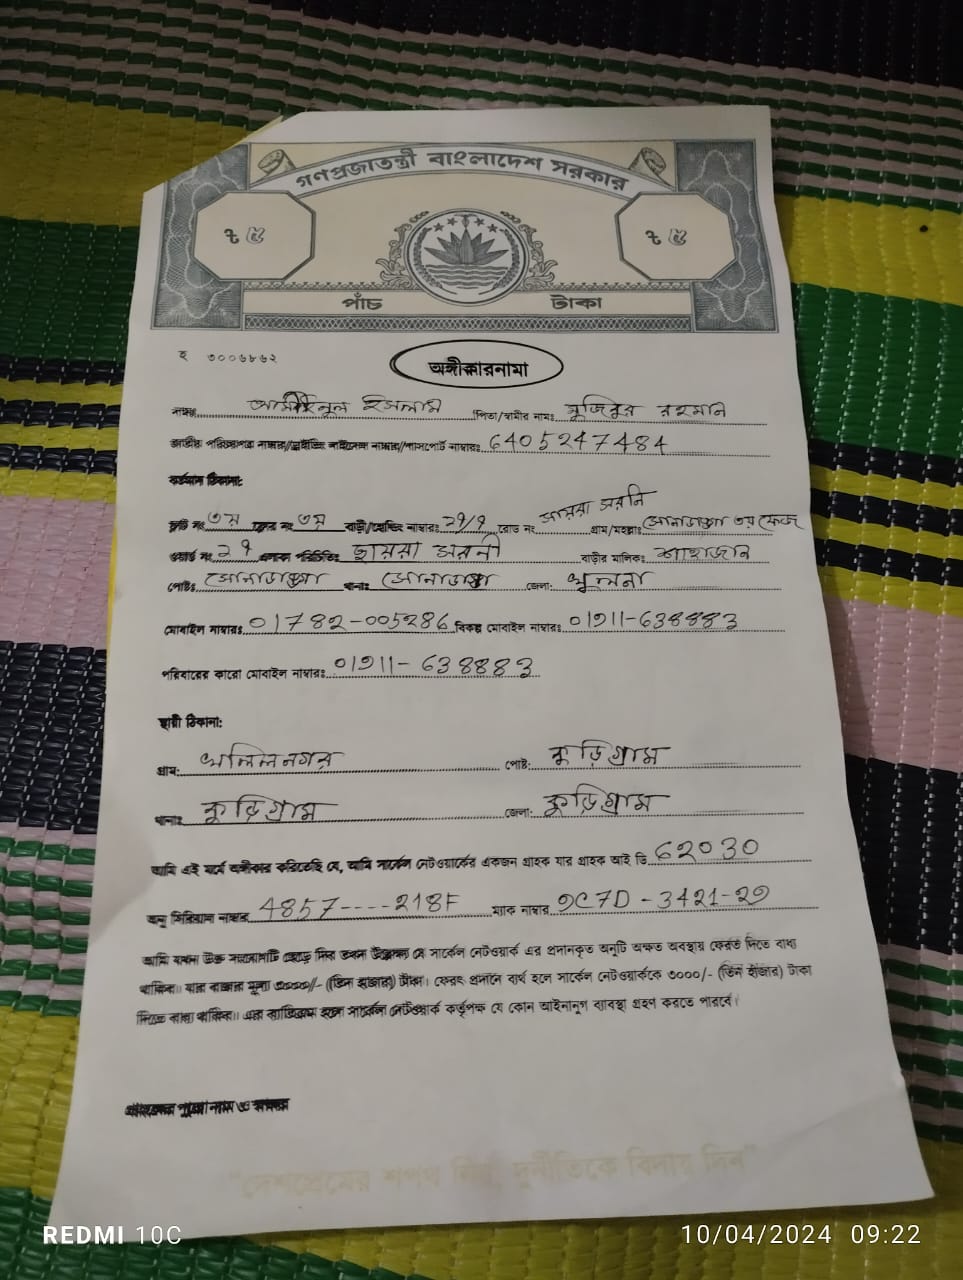 গণপ্রজাতন্ত্রী বাংলাদেশ সরকার
৳ ৫ ৳ ৫
পাঁচ টাকা
হ ৩০০৬৮৬২
অঙ্গীকারনামা
নামঃ ইসলাম পিতা/স্বামীর নামঃ মুজিবুর রহমান
জাতীয় পরিচয়পত্র নাম্বার/ নাম্বার/পাসপোর্ট নাম্বারঃ 6405247484
বর্তমান ঠিকানা:
নং ৩য় নং ৩য় বাড়ী/হোল্ডিং নাম্বারঃ ২৭/৭ রোড নং গ্রাম/মহল্লাঃ সোনাডাঙ্গা ৩য় ফেজ
ওয়ার্ড নং ২৭ বাড়ীর মালিকঃ শাহাজান
পোষ্টঃ সোনাডাঙ্গা থানাঃ সোনাডাঙ্গা জেলা: খুলনা
মোবাইল নাম্বারঃ 01782-005286 বিকল্প মোবাইল নাম্বারঃ 01911-638883
পরিবারের কারো মোবাইল নাম্বারঃ 01911-638883
স্থায়ী ঠিকানা:
গ্রাম: পোষ্ট: কুড়িগ্রাম
থানাঃ কুড়িগ্রাম জেলা: কুড়িগ্রাম
আমি এই মর্মে অঙ্গীকার করিতেছি যে, আমি সার্কেল নেটওয়ার্কের একজন গ্রাহক যার গ্রাহক আই ডি 62030
অনু সিরিয়াল নাম্বার 4857----218F ম্যাক নাম্বার 9C7D-3421-29
আমি যখন উক্ত ছেড়ে দিব তখন যে সার্কেল নেটওয়ার্ক এর প্রদানকৃত অনুটি অক্ষত অবস্থায় ফেরত দিতে বাধ্য
থাকিব। যার বাজার মূল্য ৩০০০/- (তিন হাজার) টাকা। ফেরৎ প্রদানে ব্যর্থ হলে সার্কেল নেটওয়ার্ককে ৩০০০/- (তিন হাজার) টাকা
দিতে বাধ্য থাকিব। এর ব্যতিক্রম হলে সার্কেল নেটওয়ার্ক কর্তৃপক্ষ যে কোন আইনানুগ ব্যবস্থা গ্রহণ করতে পারবে।
"দেশপ্রেমের শপথ নিন, দুর্নীতিকে বিদায় দিন"
REDMI 10C 10/04/2024 09:22